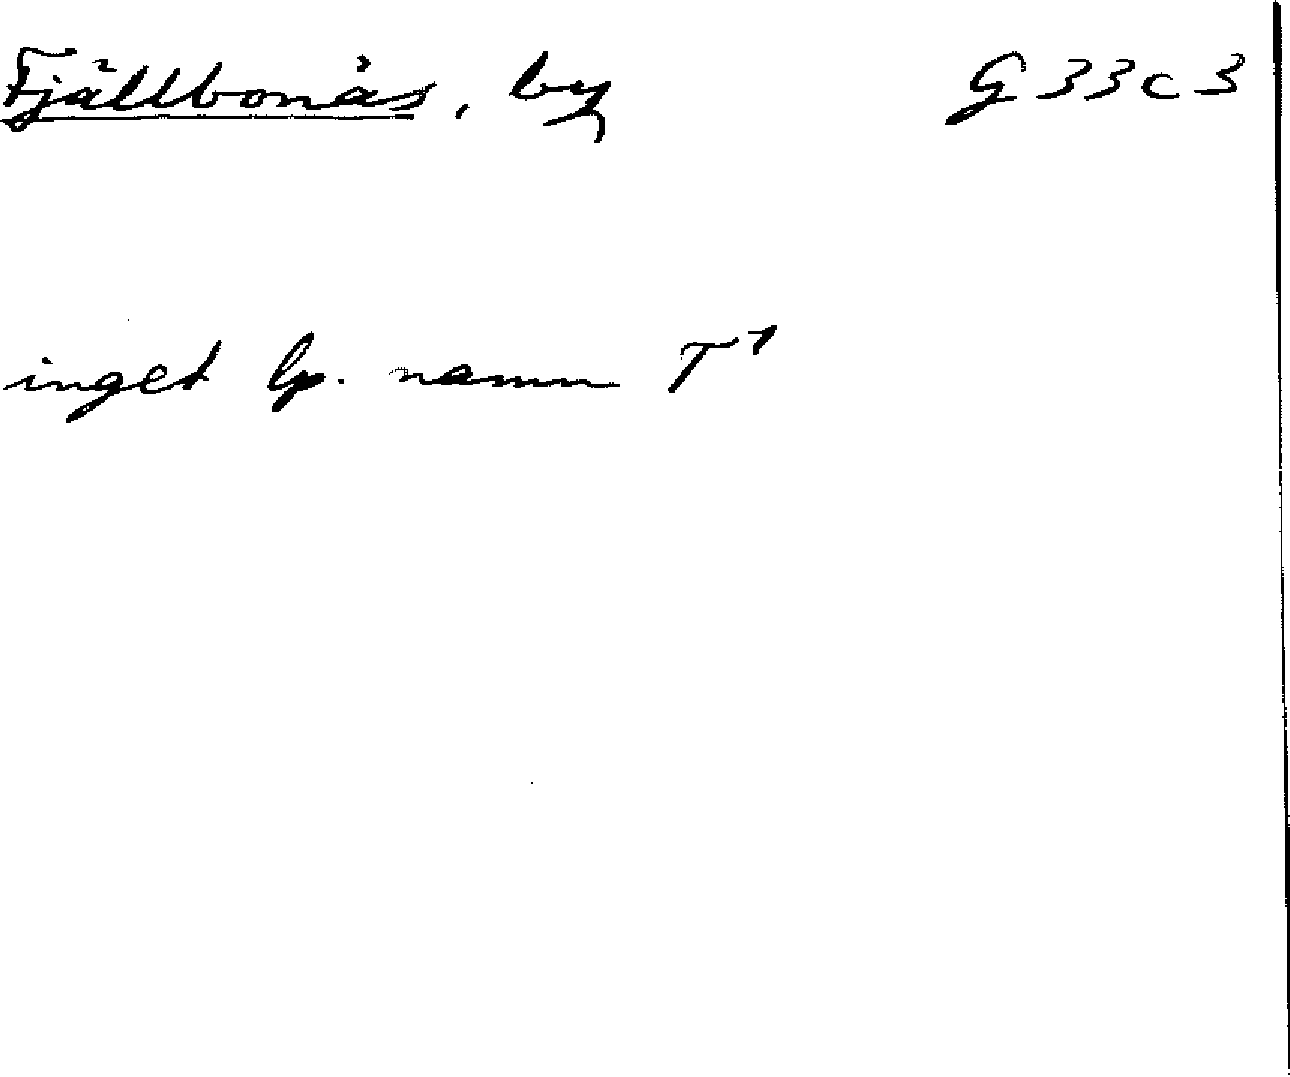 Fjällbonäs, by G33c3
inget lp. namn T¹